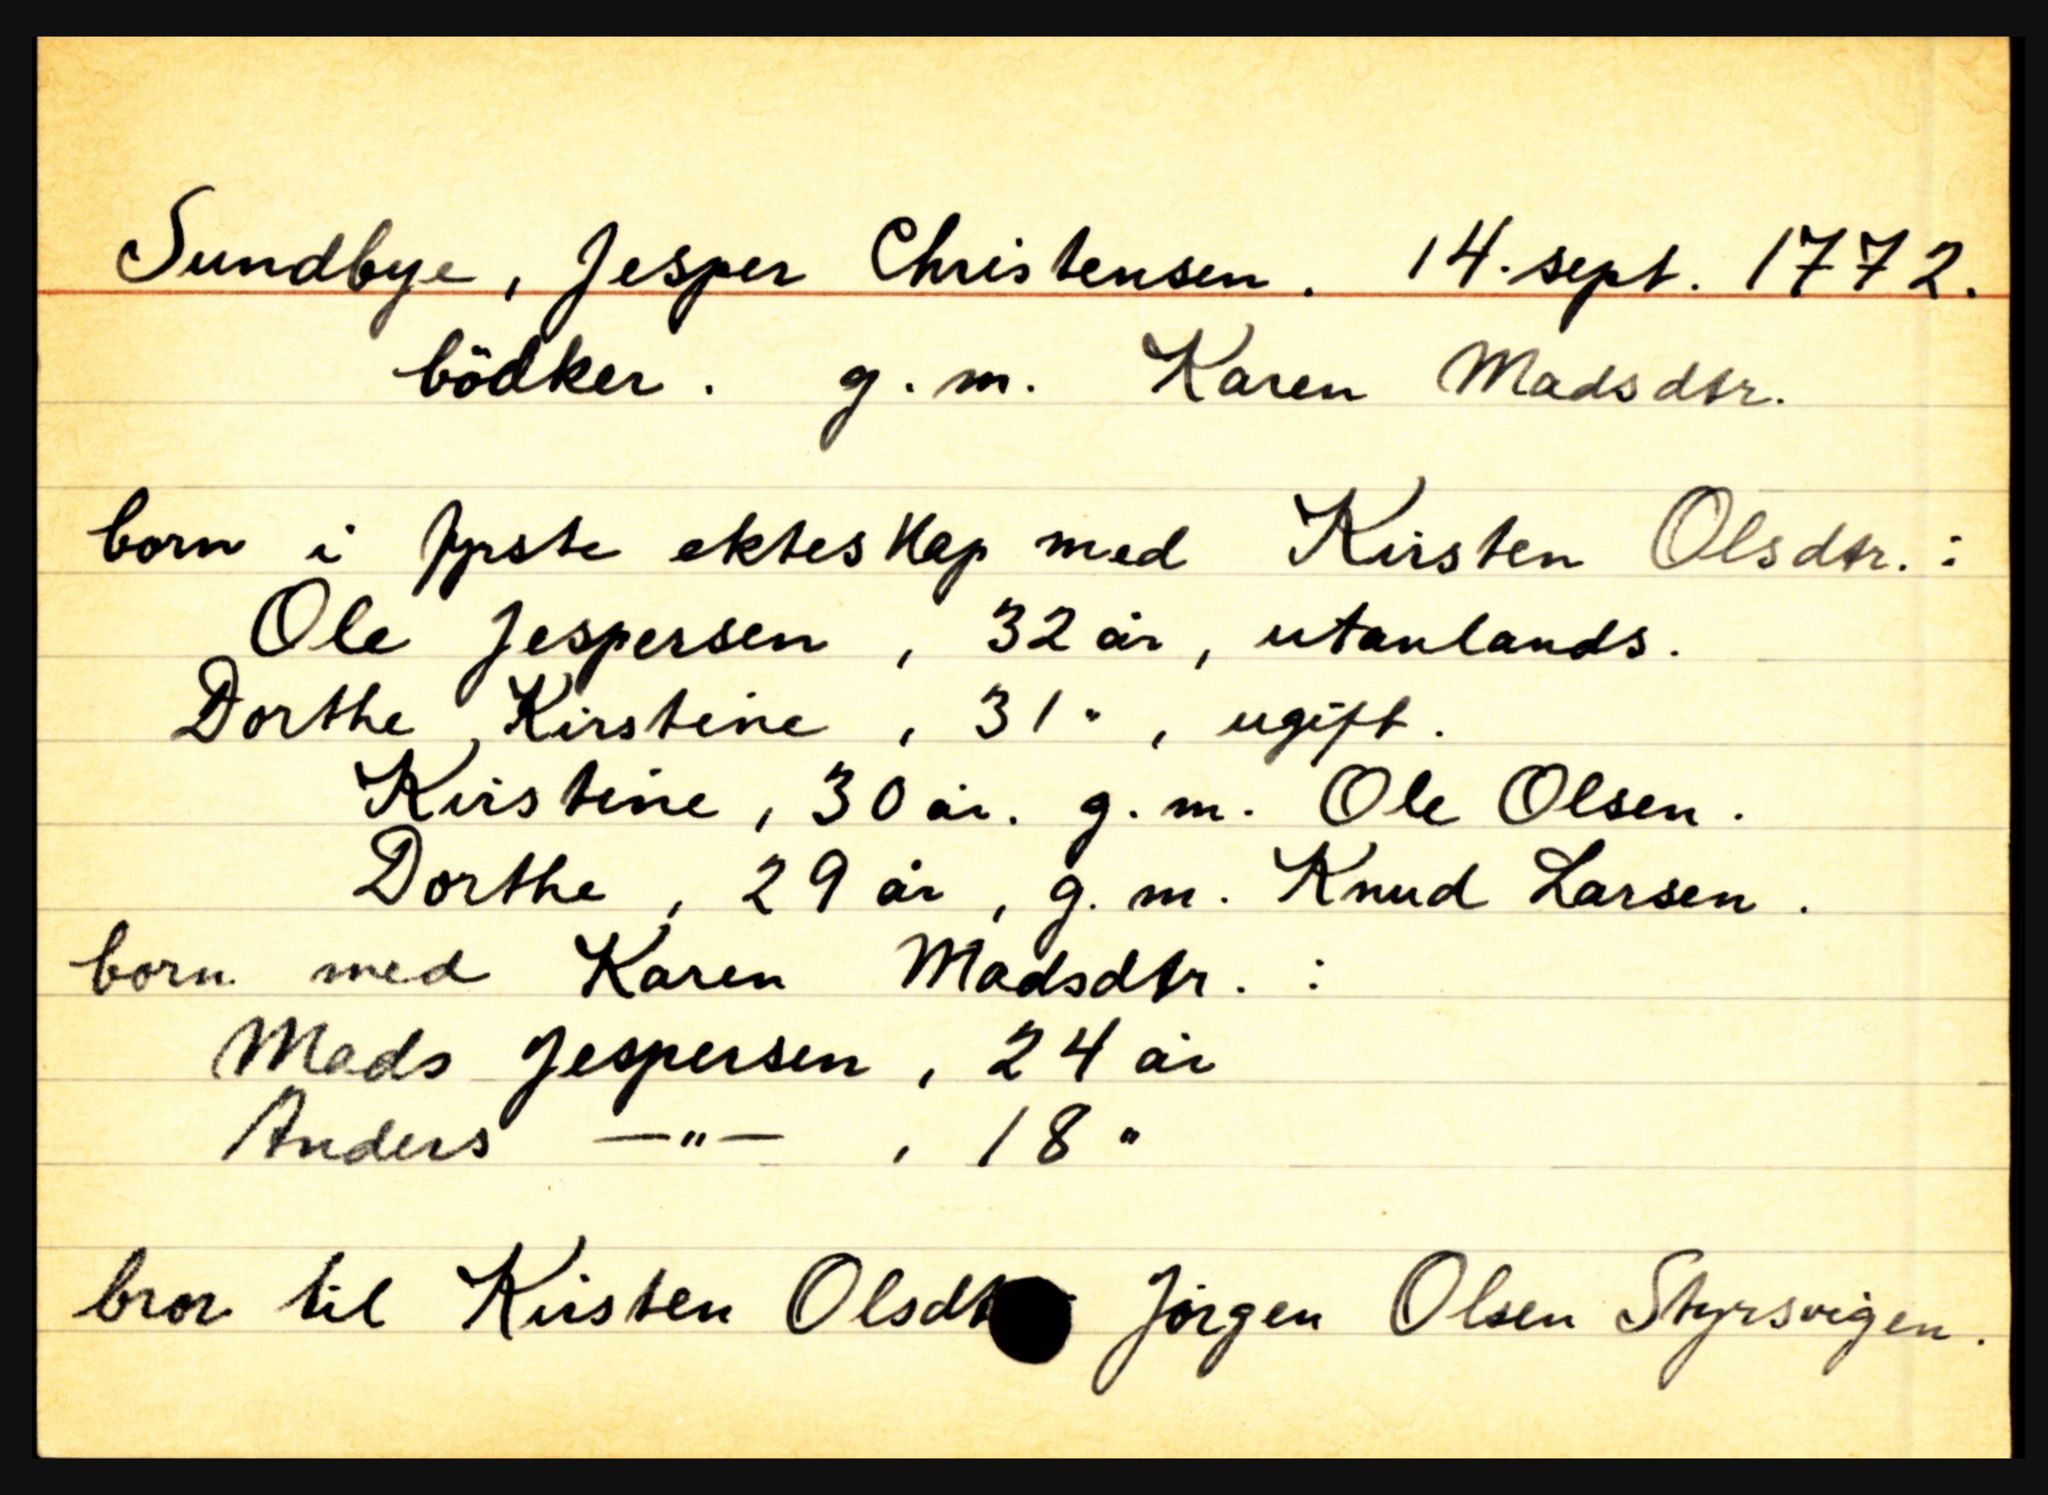 Sundbye, Jesper Christensen. 14. sept. 1772.
bödker. g. m. Karen Madsdtr.
born i fyrste ekteskap med Kirsten Olsdtr. :
Ole Jespersen, 32 år, utanlands.
Dorthe Kirstine, 31 ", ugift.
Kirstine, 30 år. g. m. Ole Olsen.
Dorthe, 29 år, g. m. Knud Larsen.
born med Karen Madsdtr. :
Mads Jespersen, 24 år
Anders —"—, 18 "
bror til Kirsten Olsdt Jörgen Olsen Styrsvigen.